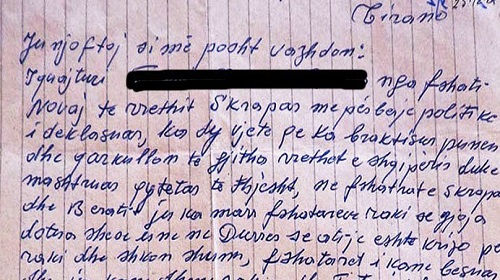 Tirano
Ju njoftoj si më posht vazhdon:
I quajturi nga fshati
Novaj te rrethit Skrapar me perberje politike
i deklasuar, ka dy vjete qe ka braktisur punen
dhe qarkullon te gjitha rrethet e shqiperis duke
mashtruar qytetar te thjesht, ne fshatrat e Skrapa
dhe Berati ju ka marr fshatareve raki se gjoja
do
raki dhe shkon shum, fshataret i kane besuar